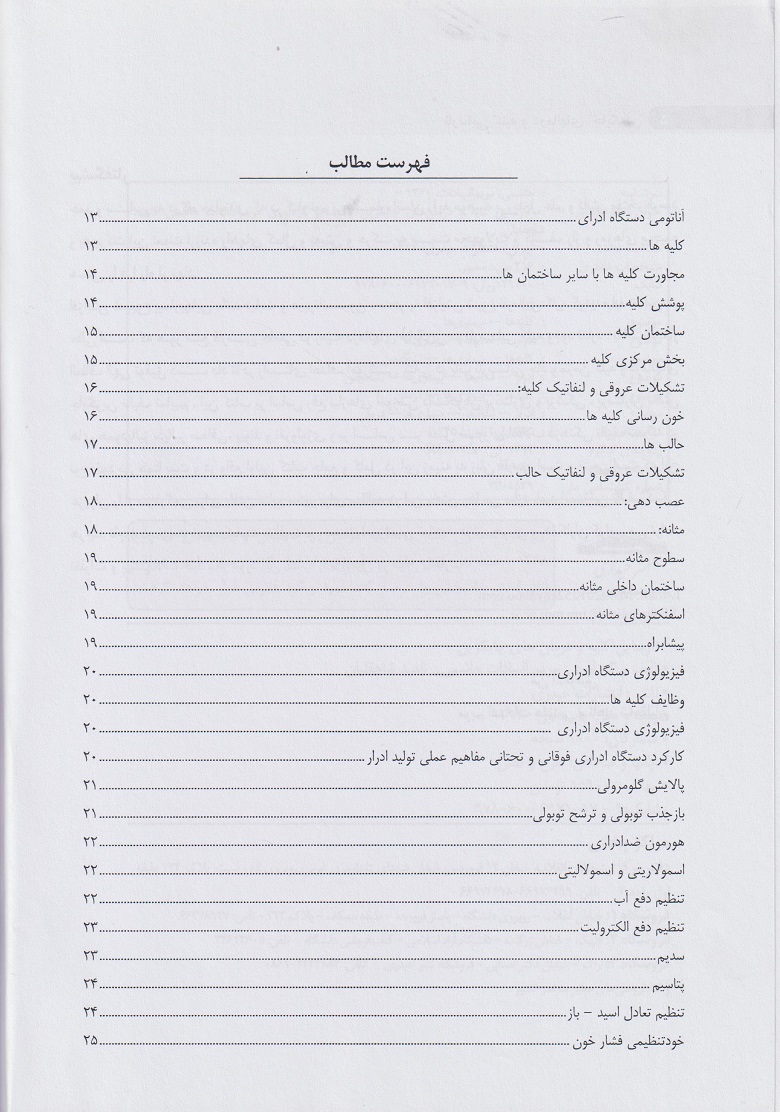 فهرست مطالب
آناتومی دستگاه ادرای ........ ۱۳
کلیه ها ........ ۱۳
مجاورت کلیه ها با سایر ساختمان ها ........ ۱۴
پوشش کلیه ........ ۱۴
ساختمان کلیه ........ ۱۵
بخش مرکزی کلیه ........ ۱۵
تشکیلات عروقی و لنفاتیک کلیه: ........ ۱۶
خون رسانی کلیه ها ........ ۱۶
حالب ها ........ ۱۷
تشکیلات عروقی و لنفاتیک حالب ........ ۱۷
عصب دهی: ........ ۱۸
مثانه: ........ ۱۸
سطوح مثانه ........ ۱۹
ساختمان داخلی مثانه ........ ۱۹
اسفنکترهای مثانه ........ ۱۹
پیشابراه ........ ۱۹
فیزیولوژی دستگاه ادراری ........ ۲۰
وظایف کلیه ها ........ ۲۰
فیزیولوژی دستگاه ادراری ........ ۲۰
کارکرد دستگاه ادراری فوقانی و تحتانی مفاهیم عملی تولید ادرار ........ ۲۰
پالایش گلومرولی ........ ۲۱
بازجذب توبولی و ترشح توبولی ........ ۲۱
هورمون ضدادراری ........ ۲۲
اسمولاریتی و اسمولالیتی ........ ۲۲
تنظیم دفع آب ........ ۲۲
تنظیم دفع الکترولیت ........ ۲۳
سدیم ........ ۲۳
پتاسیم ........ ۲۴
تنظیم تعادل اسید – باز ........ ۲۴
خودتنظیمی فشار خون ........ ۲۵